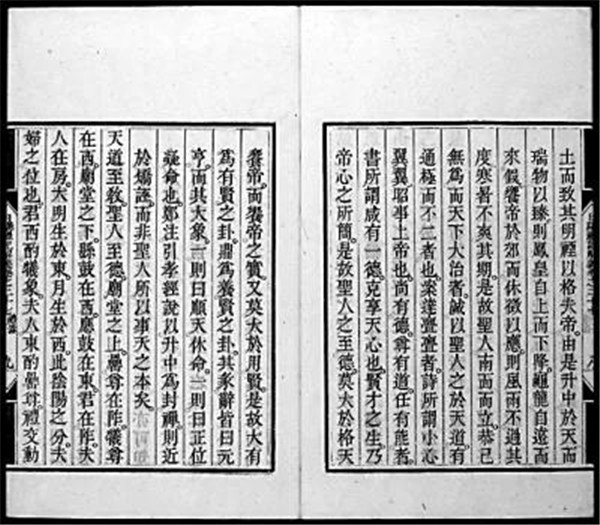 土而致其明禋以格夫帝。由是升中於天而
瑞物以臻。則鳳皇自上而下降。龜龍自遠而
來假。饗帝於郊而休徵以應。則風雨不過其
度。寒暑不爽其期。是故聖人南面而立。恭己
無爲而天下大治者。誠以聖人之於天道有
通極而不二者也。案達亹亹者。詩所謂小心
翼翼昭事上帝也。尚有德。尊有道。任有能者。
書所謂咸有一德。克享天心也。賢才之生。乃
帝心之所簡。是故聖人之至德。莫大於格天
饗帝。而饗帝之實。又莫大於用賢。是故大有
爲有賢之卦。鼎爲養賢之卦。其彖辭皆曰元
亨。而其大象。一則曰順天休命。一則曰正位
凝命也。鄭注引孝經說。以升中爲封禪。則近
於矯誣。而非聖人所以事天之本矣。
天道至教。聖人至德。廟堂之上。罍尊在阼。犧尊
在西。廟堂之下。縣鼓在西。應鼓在東。君在阼。夫
人在房。大明生於東。月生於西。此陰陽之分。夫
婦之位也。君西酌犧象。夫人東酌罍尊。禮交動